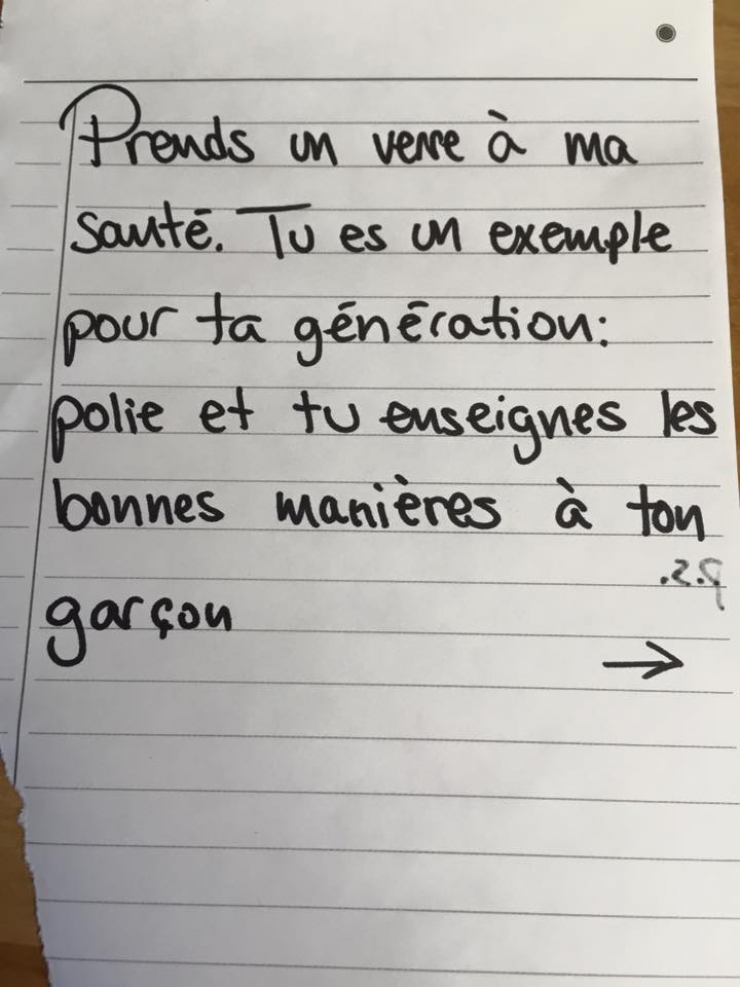 Prends un verre à ma
santé. Tu es un exemple
pour ta génération:
polie et tu enseignes les
bonnes manières à ton
garçon
→